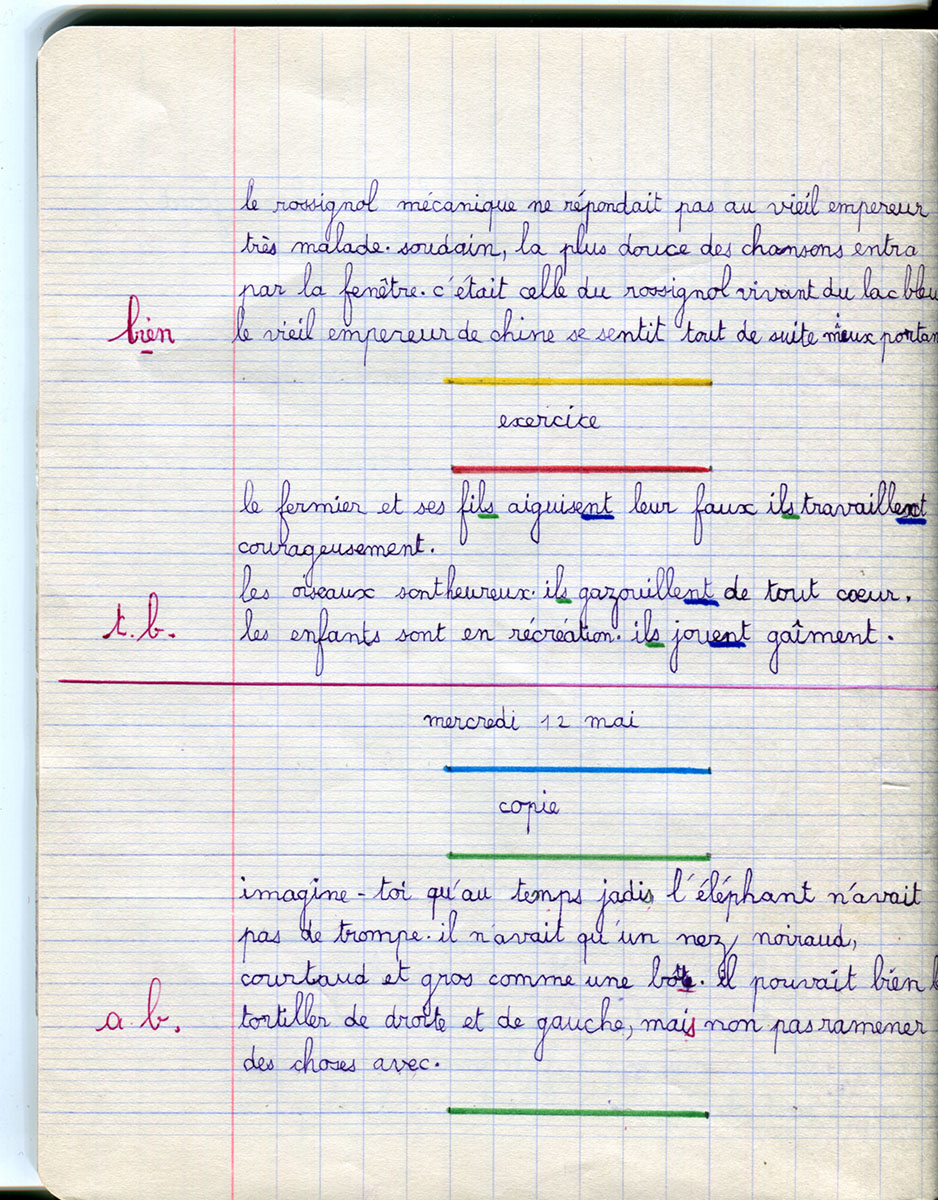 le rossignol mécanique ne répondait pas au vieil empereur
très malade. soudain, la plus douce des chansons entra
par la fenêtre. c'était celle du rossignol vivant du lac bleu
bien
le vieil empereur de chine se sentit tout de suite mieux portan
exercice
le fermier et ses fils aiguisent leur faux ils travaillent
courageusement.
les oiseaux sont heureux. ils gazouillent de tout coeur.
t.b.
les enfants sont en récréation. ils jouent gaîment.
mercredi 12 mai
copie
imagine-toi qu'au temps jadis, l'éléphant n'avait
pas de trompe. il n'avait qu'un nez noiraud,
courtaud et gros comme une botte. il pouvait bien l
a.b.
tortiller de droite et de gauche, mais non pas ramener
des choses avec.